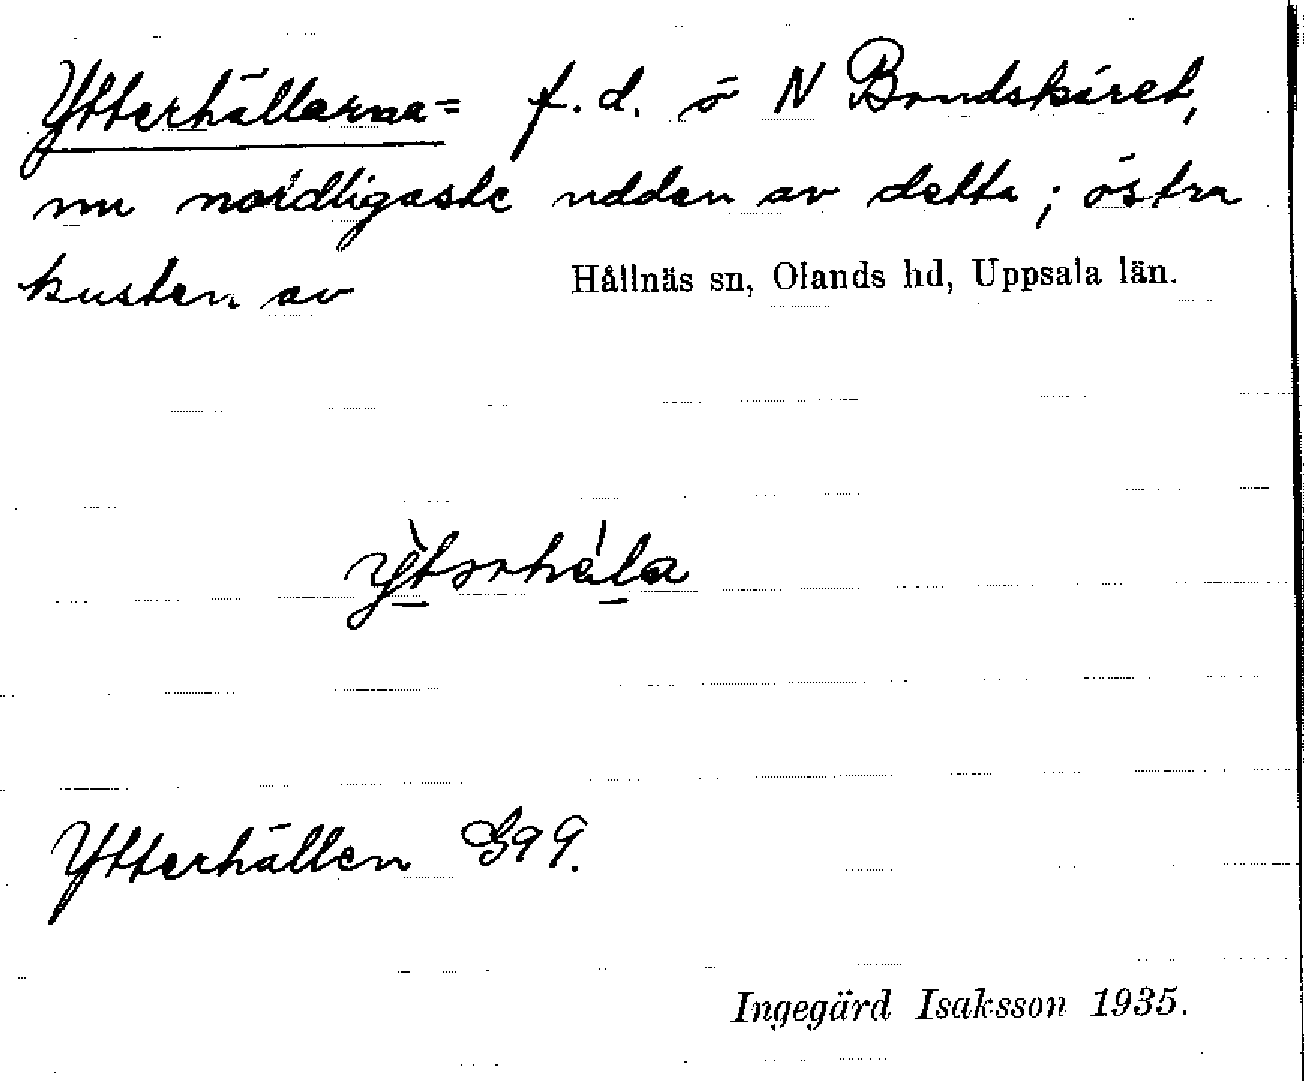 Ytterhällarna = f. d. ö N Bondskäret,
nu nordligaste udden av detta; östra
kusten av Hållnäs sn, Olands hd, Uppsala län.
ỳtərhä́la
Ytterhällen G99.
Ingegärd Isaksson 1935.